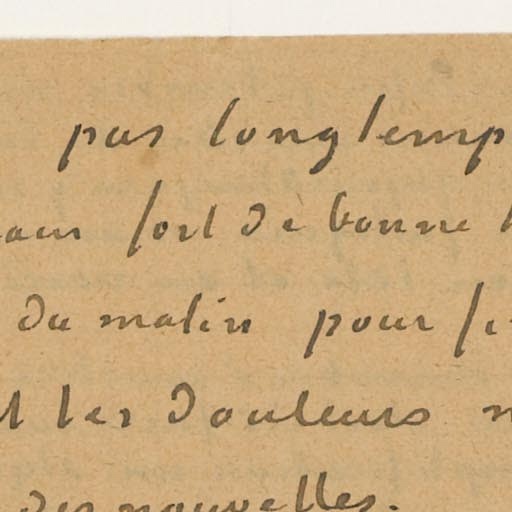 pas longtemp
fort dè bonne
du matin pour
les douleurs
des nouvelles.